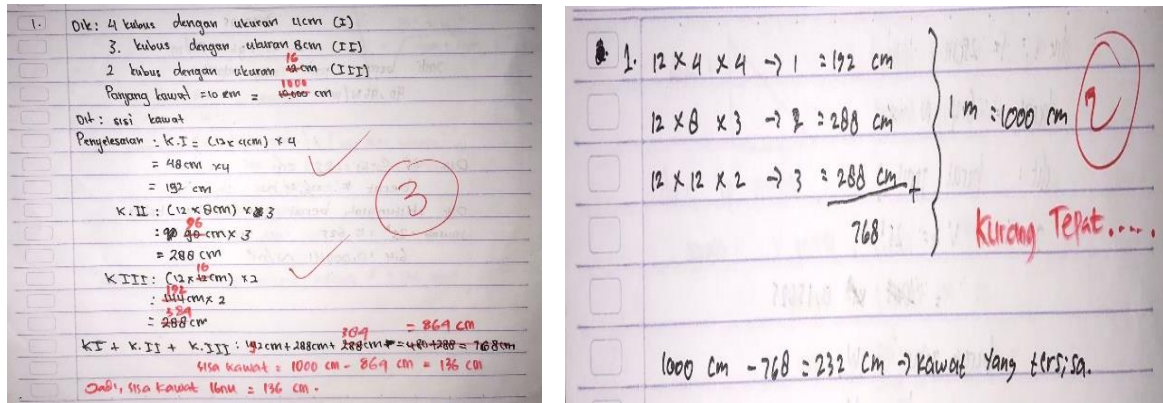 1. Dik: 4 kubus dengan ukuran 4cm (I)
3. kubus dengan ukuran 8cm (II)
16
2 kubus dengan ukuran 12cm (III)
1000
Panjang kawat = 10 cm = 10.000 cm
Dit: sisi kawat
Penyelesaian : K.I = (12x 4cm) x 4
= 48cm x4
= 192 cm
3
K.II : (12 x 8cm) x 3
96
: 90 cm x 3
= 288 cm
16
KIII : (12x12cm) x2
192
: 144cm x 2
384
= 288cm
384 = 864 cm
KI + K.II + K.III : 192cm + 288cm + 288cm = 480+288 = 768cm
sisa kawat = 1000 cm - 864 cm = 136 cm
Jadi, sisa kawat = 136 cm.
1. 12 x 4 x 4 → 1 = 192 cm
12 x 8 x 3 → 2 = 288 cm
1 m = 1000 cm
2
12 x 12 x 2 → 3 = 288 cm +
768
Kurang Tepat.....
1000 cm - 768 = 232 cm → kawat yang tersisa.